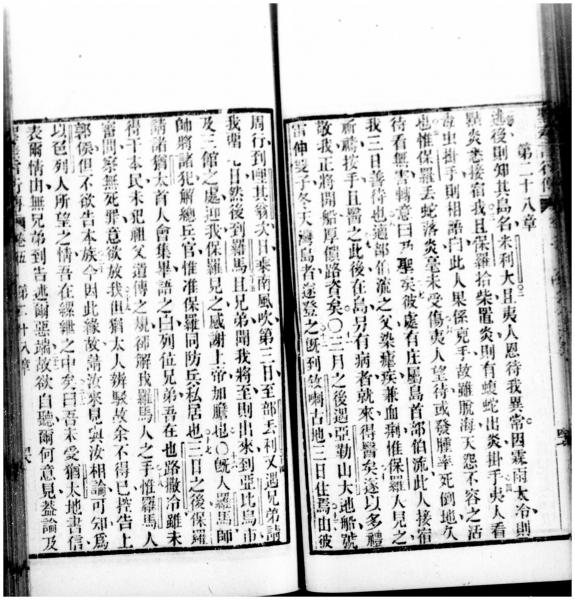 第二十八章
逃後則知其島名米利大且夷人恩待我異常因霖雨太冷則
點炎悉接宿我且保羅拾柴置炎則有蝮蛇出炎掛手夷人看
毒虫掛手則相語白此人果係兇手故雖脫海天怨不容之活
也惟保羅丢蛇落炎毫未受傷夷人望待或發腫率死倒地久
待看無害轉意曰乃聖矣彼處有庄屬島首部伯流此人接宿
我三日善待也適部伯流之父染瘧疾兼血痢惟保羅入見之
祈禱按手且醫之此後在島另有病者就來得醫矣遂以多禮
敬我正將開船厚饋路資矣〇三月之後遇亞勒山大地船號
雷伸雙子冬天灣島者遂登之旣到敘喇古地三日住焉由彼
周行到哩其翁次日乘南風吹第二日至部丟利又遇兄弟請
我酒七日然後到羅馬且兄弟聞我將至則出來到亞比烏市
及三館之處迎我保羅見之感謝上帝加膽也〇旣入羅馬師
帥將諸犯解總兵官惟准保羅同防兵私居也三日之後保羅
請諸猶太首人會集畢語之曰列位兄弟吾在也路撒冷雖未
得干本民未犯祖父道傳之規卻解我羅馬人之手惟羅馬人
審問察無死罪意欲放我但猶太人辨駁故余不得已控告上
郭侯但不欲告本族今因此緣故請汝來見與汝相論可知為
以色列人所望之情吾在縲絏之中矣曰吾未受猶太地書信
表爾情由無兄弟到告述爾惡端故欲自聽爾何意見葢論及